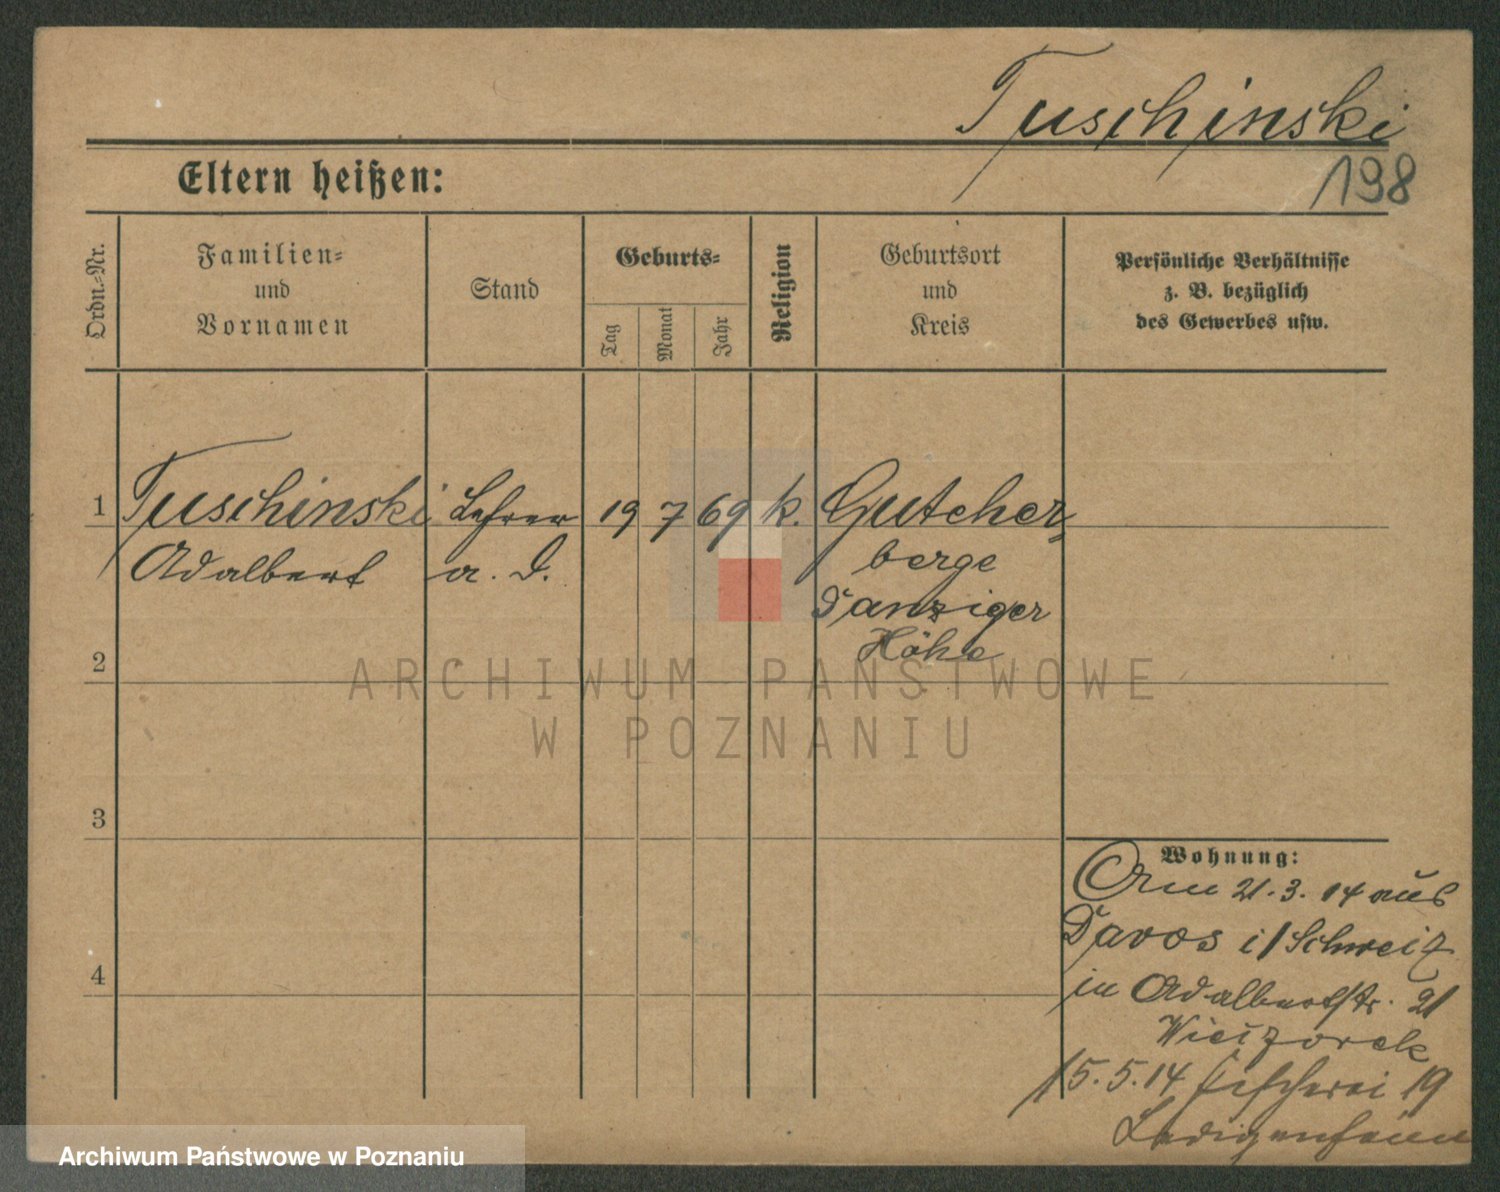 Tuschinski
198
Eltern heißen:
Ordn.-Nr.
Familien-
und
Vornamen
Stand
Geburts-
Tag
Monat
Jahr
Religion
Geburtsort
und
Kreis
Persönliche Verhältnisse
z. B. bezüglich
des Gewerbes usw.
1 Tuschinski Lehrer 19 7 69 k. Guteher-
Adalbert a. D. berge
Danziger
Höhe
2
ARCHIWUM PAŃSTWOWE
W POZNANIU
3
Wohnung:
Am 21.3.14 aus
Davos i/Schweiz
4
in Adalbertstr. 21
Wieczorek
15.5.14 Fischerei 19
Ledigenheim
Archiwum Państwowe w Poznaniu